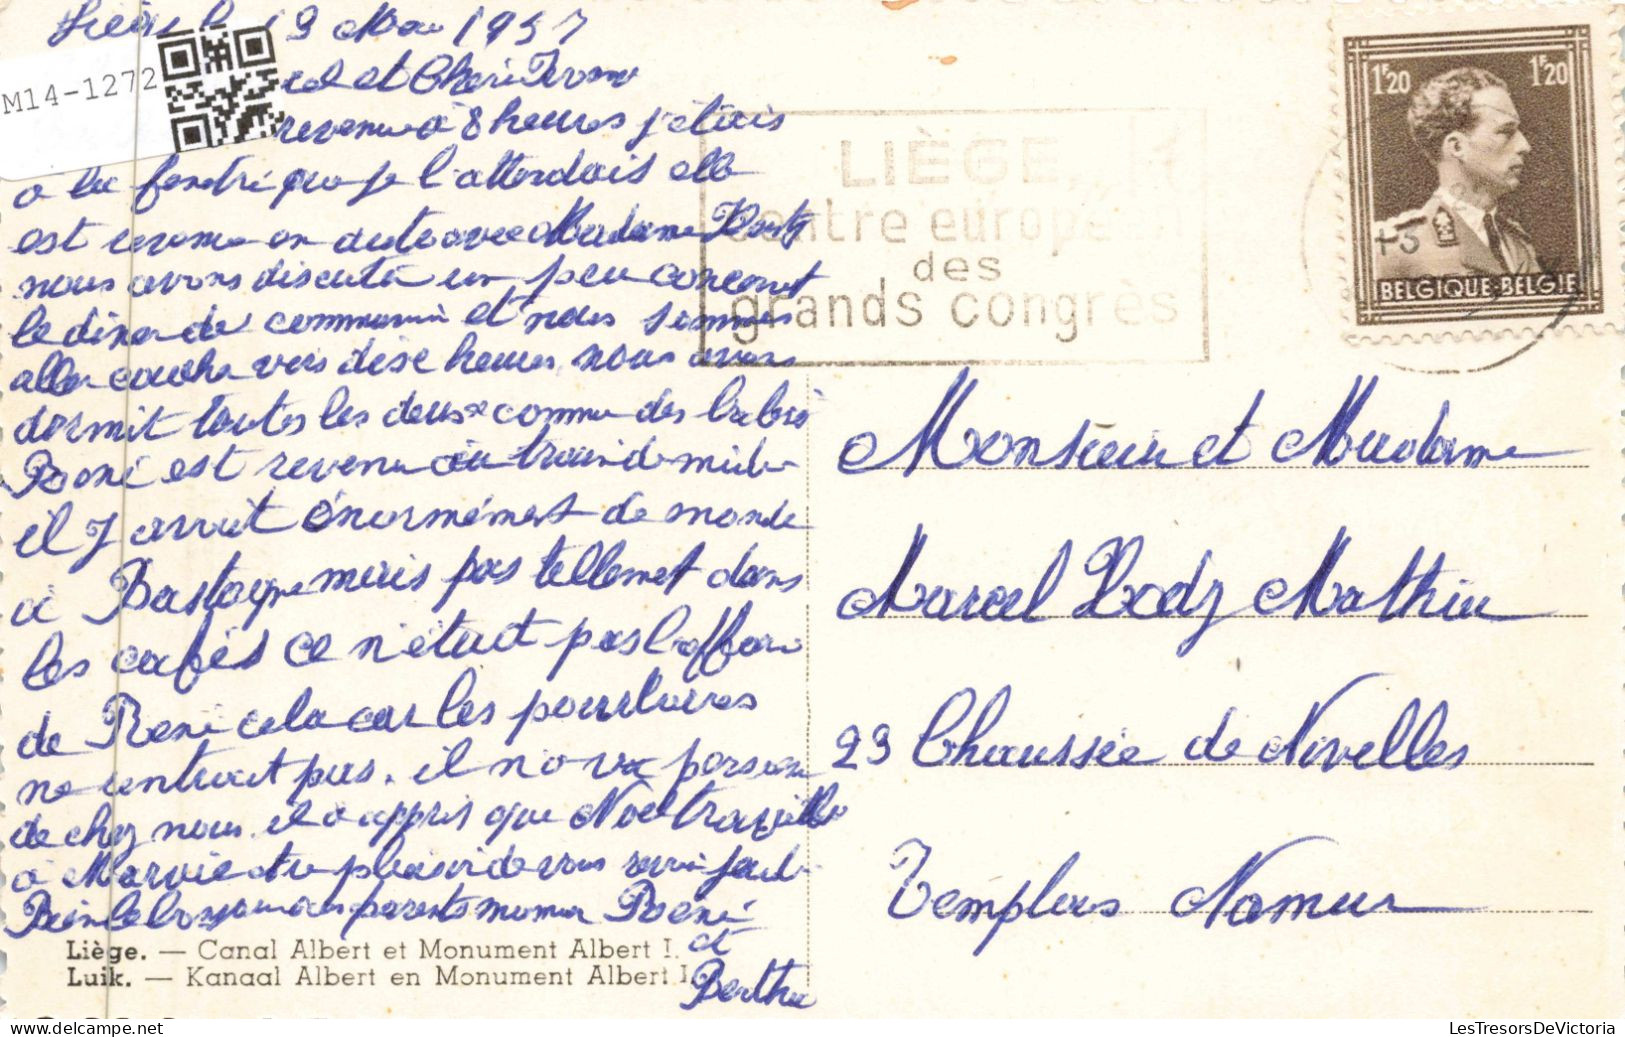 Liège le 19 Mai 1957
M14-1272
et Cheri
revenue à 8 heures j'étais
a la fenetre que je l'attendais elle
est revenue en auto avec Madame
nous avons discuter un peu concernt
le diner de communion et nous sommes
aller coucher vers dixe heures, nous avons
dormit toutes les deux comme des bébés
René est revenu au train de
il y avait énormément de monde
à Bastogne mais pas tellement dans
les cafés ce n'était pas l'affaire
de René cela car les pourboires
ne rentrait pas. il no va
de chez nous. il a appris que Noel travaille
à Marvie du plaisir de vous
Bien le bonjour des parents maman René
et
Berthe
Liège. — Canal Albert et Monument Albert I.
Luik. — Kanaal Albert en Monument Albert I.
LIÈGE,
centre europé
des
grands congrès
1F20 1F20
BELGIQUE-BELGIE
Monsieur et Madame
Marcel Mathieu
23 Chaussée de Nivelles
Temploux Namur
LesTresorsDeVictoria.com